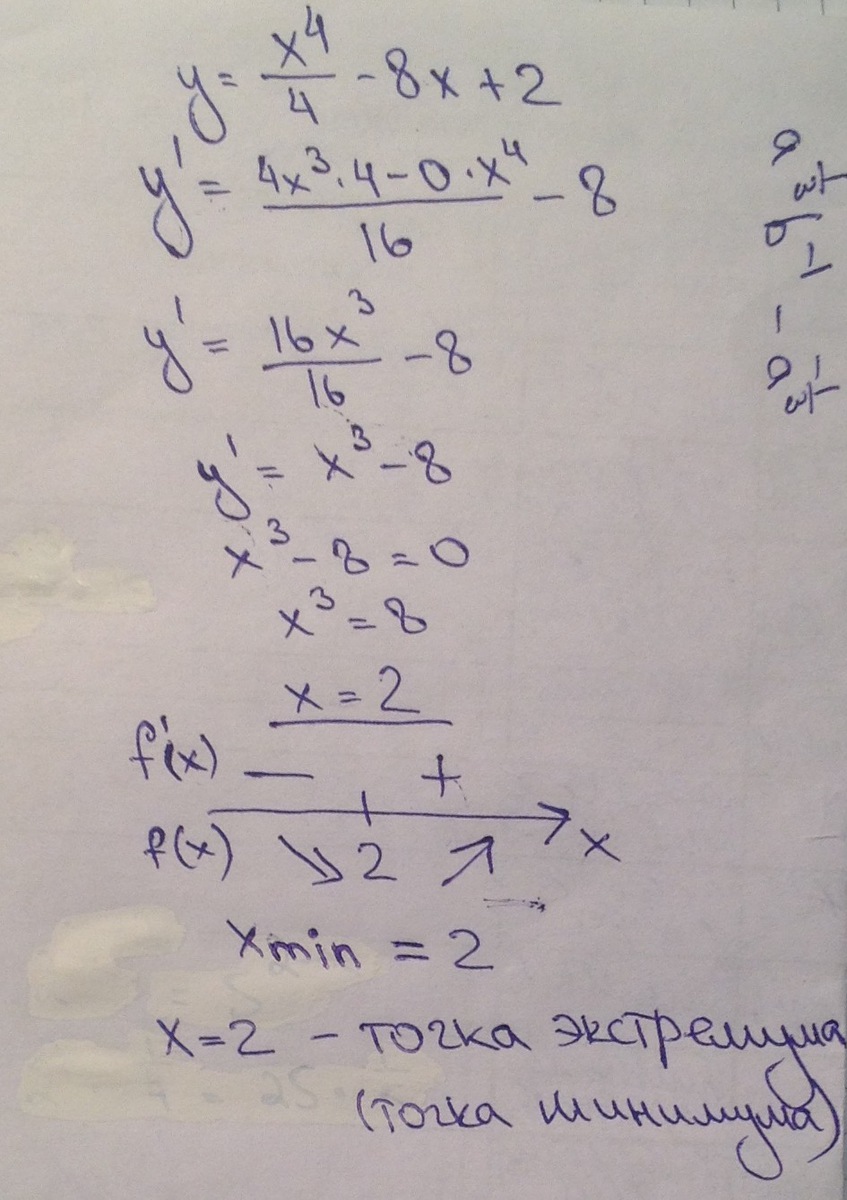 y = x⁴/4 - 8x + 2
y' = (4x³·4 - 0·x⁴)/16 - 8
y' = 16x³/16 - 8
y' = x³ - 8
x³ - 8 = 0
x³ = 8
x = 2
f'(x) — +
f(x) ↘ 2 ↗ x
xmin = 2
x = 2 - точка экстремума
(точка минимума)